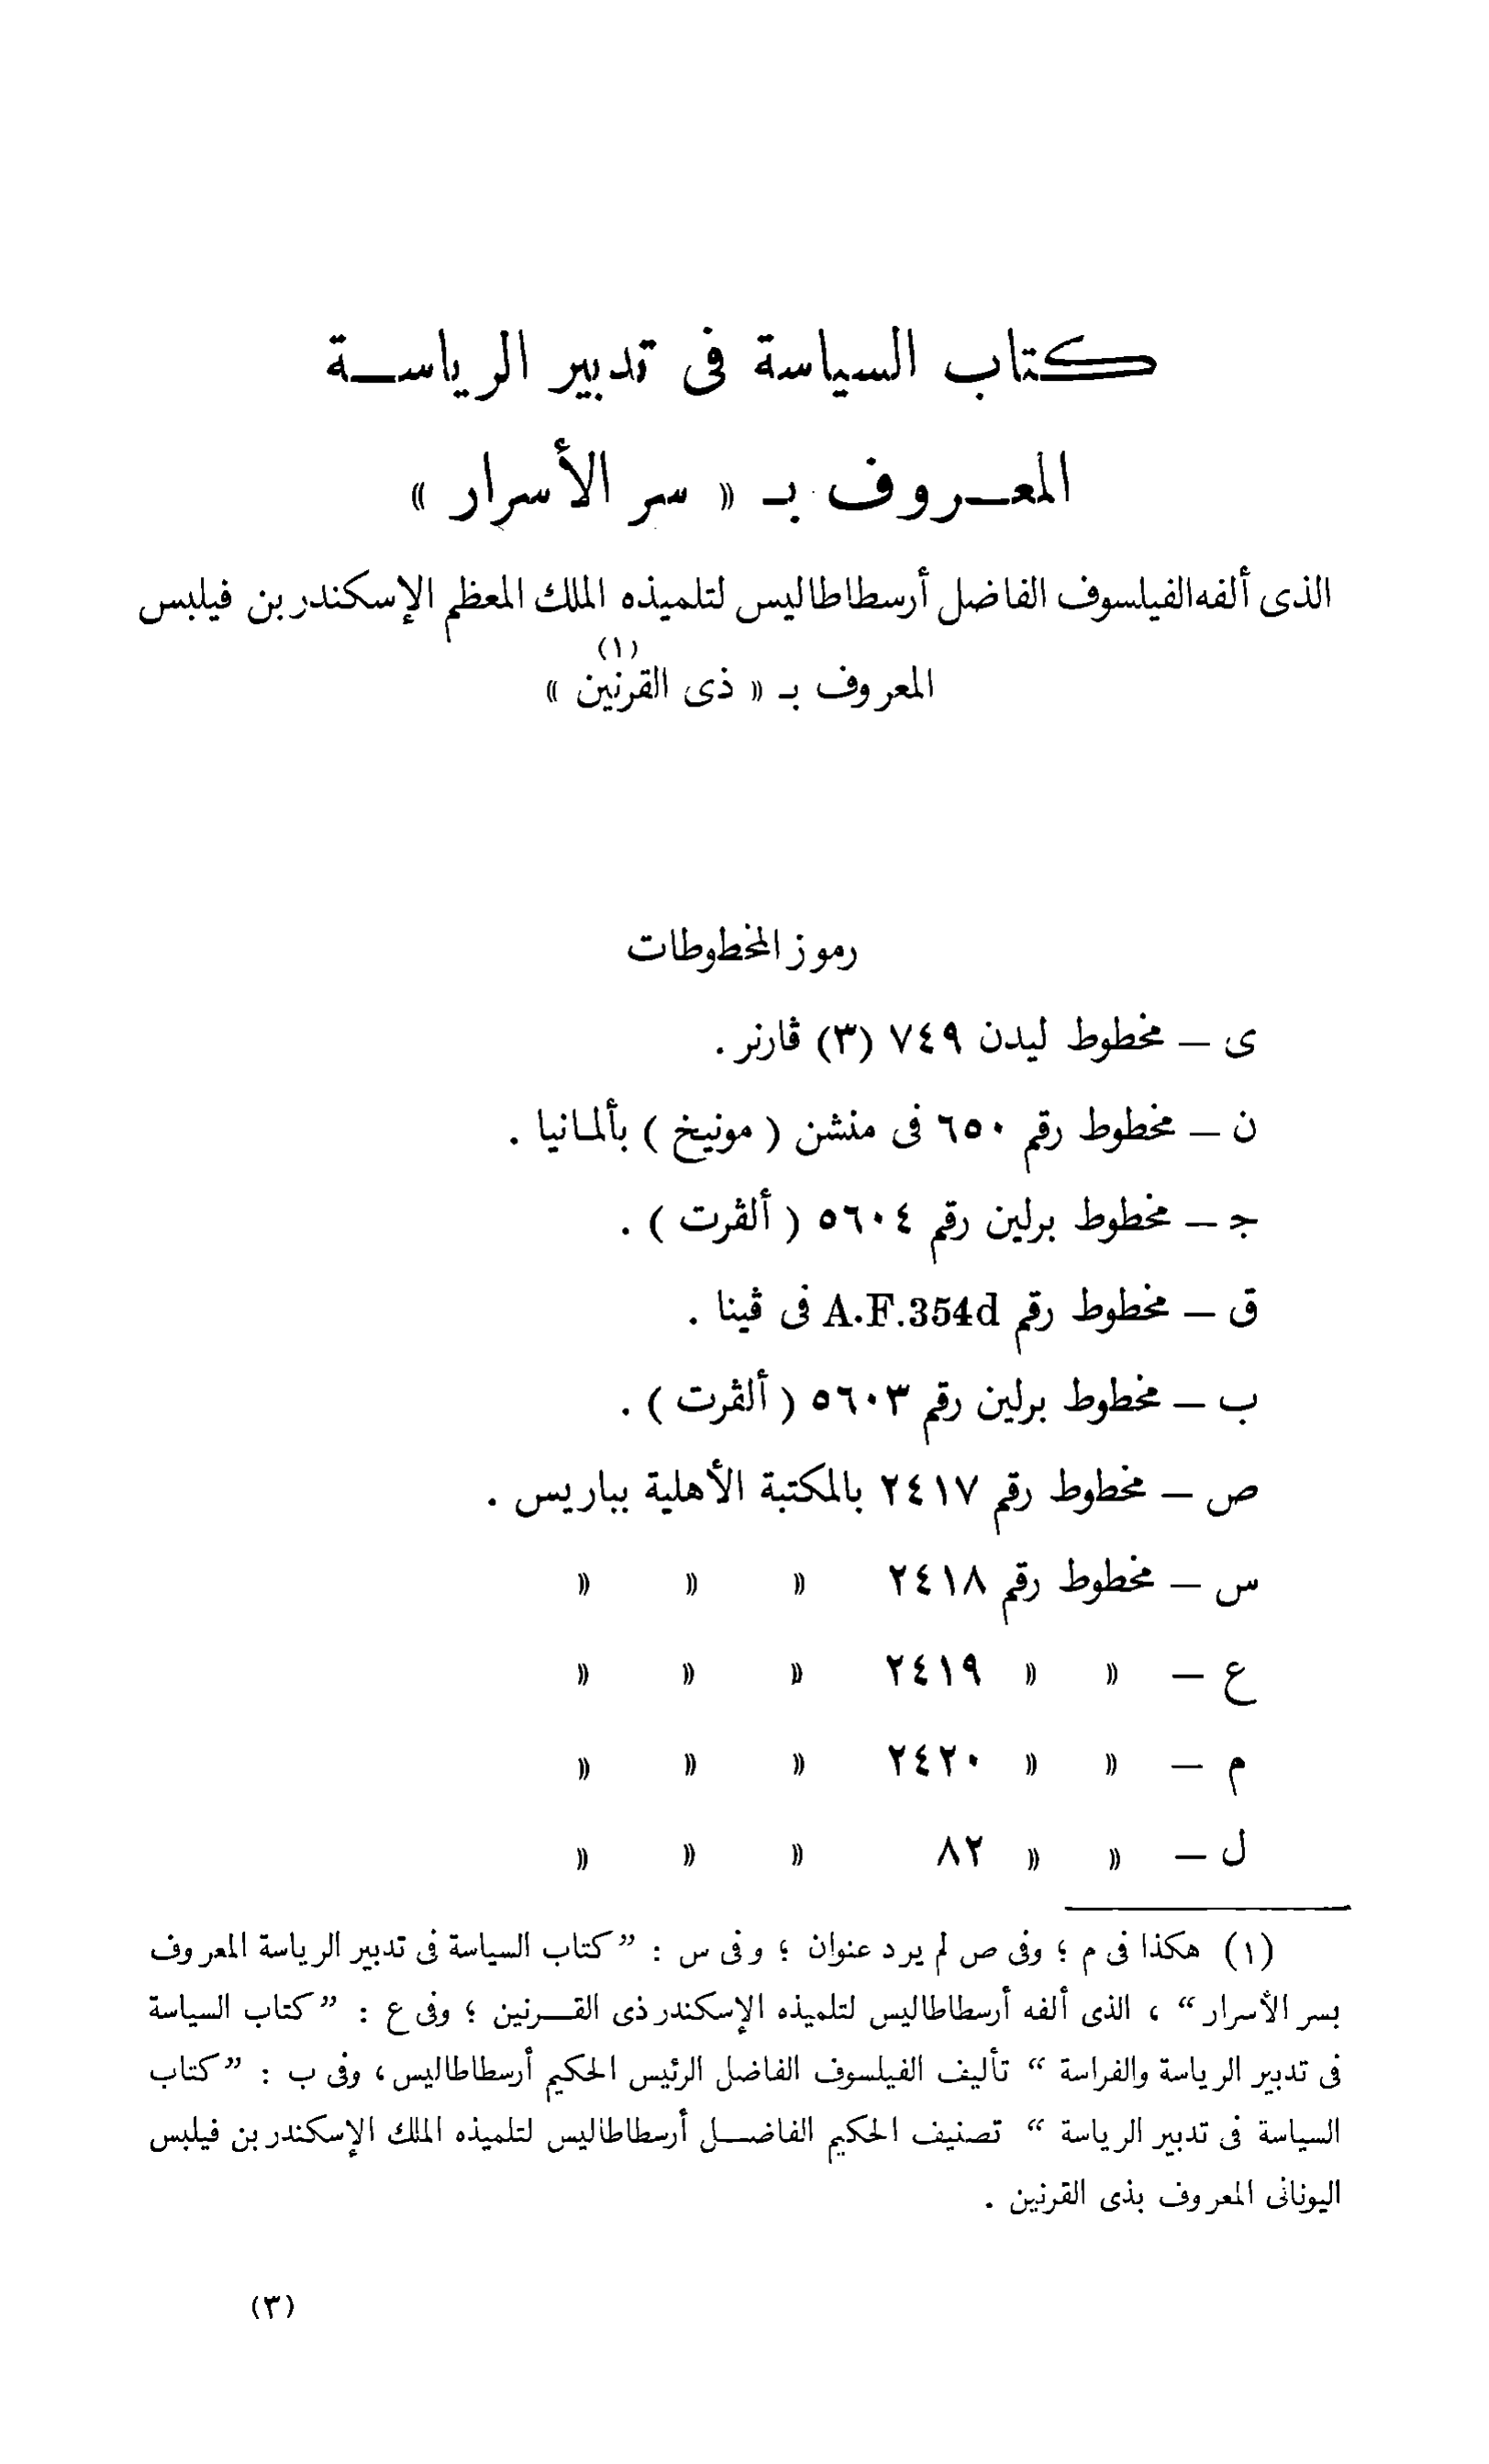 كتاب السياسة فى تدبير الرياسة
المعروف بـ « سر الأسرار »
الذى ألفه الفيلسوف الفاضل أرسطاطاليس لتلميذه الملك المعظم الإسكندر بن فيلبس
المعروف بـ « ذى القرنين » (١)
رموز المخطوطات
ى — مخطوط ليدن ٧٤٩ (٣) ڤارنر .
ن — مخطوط رقم ٦٥٠ فى منشن ( مونيخ ) بألمانيا .
جـ — مخطوط برلين رقم ٥٦٠٤ ( ألڤرت ) .
ق — مخطوط رقم A.F.354d فى ڤينا .
ب — مخطوط برلين رقم ٥٦٠٣ ( ألڤرت ) .
ص — مخطوط رقم ٢٤١٧ بالمكتبة الأهلية بباريس .
س — مخطوط رقم ٢٤١٨ » » »
ع — » » ٢٤١٩ » » »
م — » » ٢٤٢٠ » » »
ل — » » ٨٢ » » »
(١) هكذا فى م ؛ وفى ص لم يرد عنوان ؛ وفى س : ”كتاب السياسة فى تدبير الرياسة المعروف
بسر الأسرار“ ، الذى ألفه أرسطاطاليس لتلميذه الإسكندر ذى القرنين ؛ وفى ع : ”كتاب السياسة
فى تدبير الرياسة والفراسة “ تأليف الفيلسوف الفاضل الرئيس الحكيم أرسطاطاليس، وفى ب : ”كتاب
السياسة فى تدبير الرياسة “ تصنيف الحكيم الفاضل أرسطاطاليس لتلميذه الملك الإسكندر بن فيلبس
اليونانى المعروف بذى القرنين .
(٣)